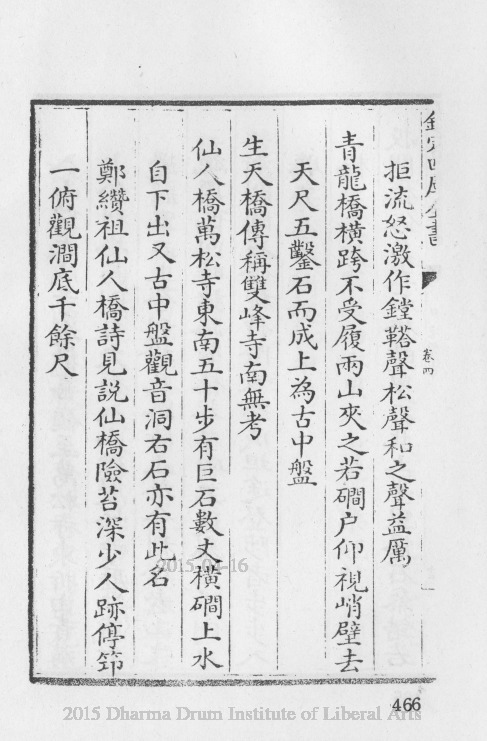 欽定四庫全書
卷四
拒流怒激作鏜鞳聲松聲和之聲益厲
青龍橋橫跨不受履兩山夾之若磵户仰視峭壁去
天尺五鑿石而成上為古中盤
生天橋傳稱雙峰寺南無考
仙人橋萬松寺東南五十步有巨石數丈橫磵上水
自下出又古中盤觀音洞右石亦有此名
鄭纘祖仙人橋詩見説仙橋險苔深少人跡停筇
一俯觀澗底千餘尺
2015-04-16
466
2015 Dharma Drum Institute of Liberal Arts